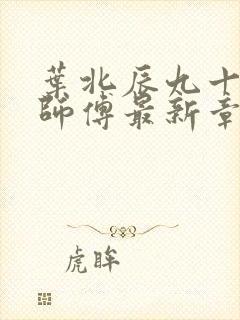 葉北辰九十
師傅最新章
虎眸